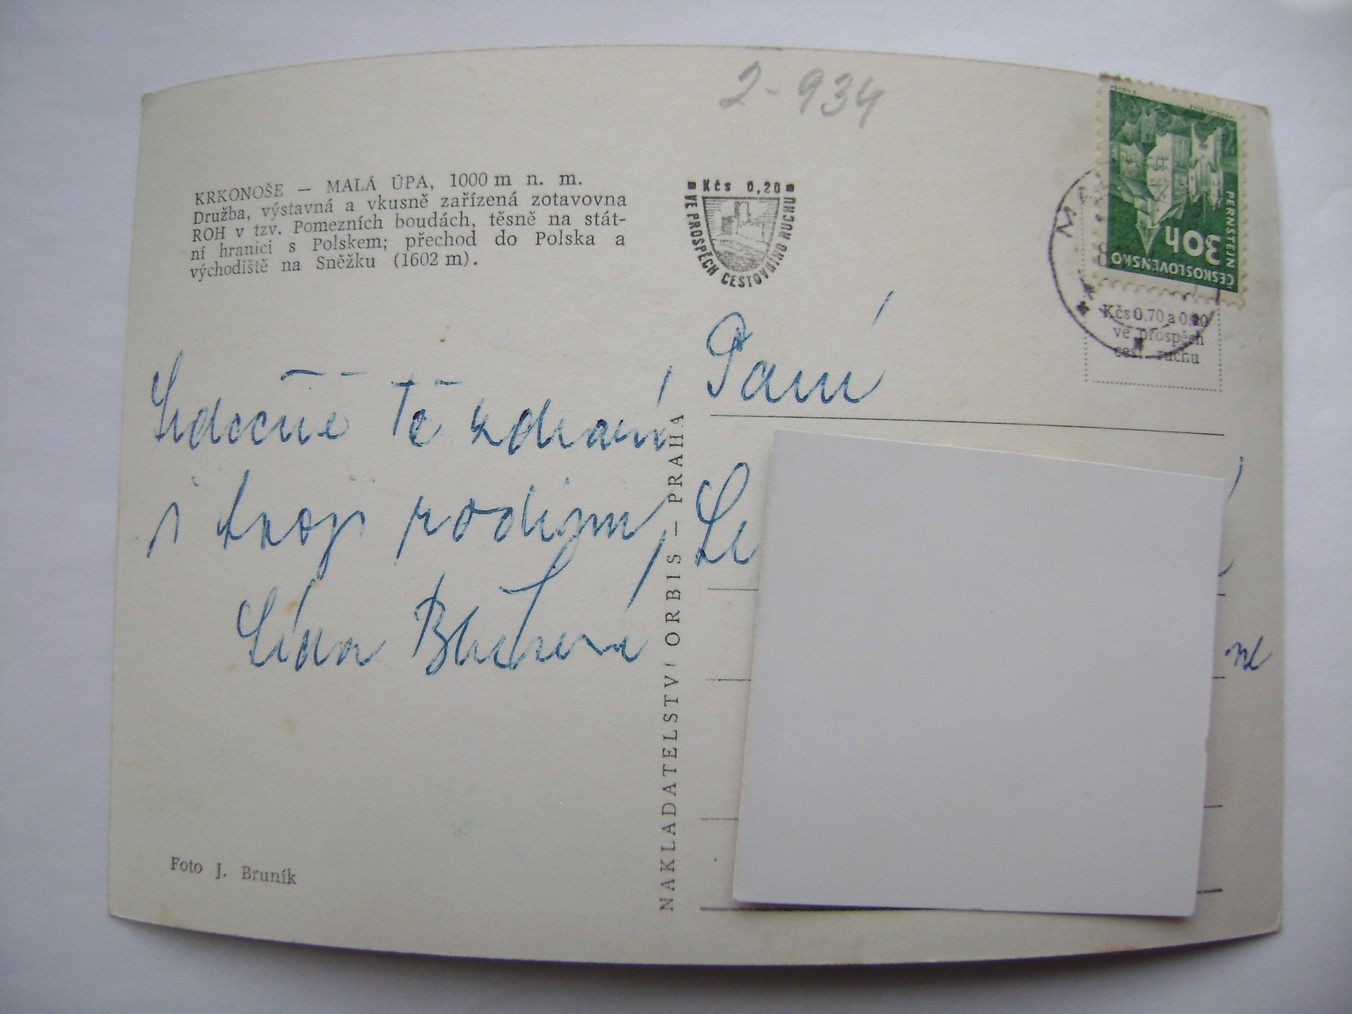 2-934
KRKONOŠE — MALÁ ÚPA, 1000 m n. m.
Družba, výstavná a vkusně zařízená zotavovna
ROH v tzv. Pomezních boudách, těsně na stát-
ní hranici s Polskem; přechod do Polska a
východiště na Sněžku (1602 m).
Kčs 0,20
VE PROSPĚCH CESTOVNÍHO RUCHU
PERNŠTEJN
30h
ČESKOSLOVENSKO
Kčs 0,70 a 0,20
ve prospěch
cest. ruchu
Srdečně Tě zdraví
i tvoji rodinu,
Lída
Paní
NAKLADATELSTVÍ ORBIS — PRAHA
Foto J. Bruník